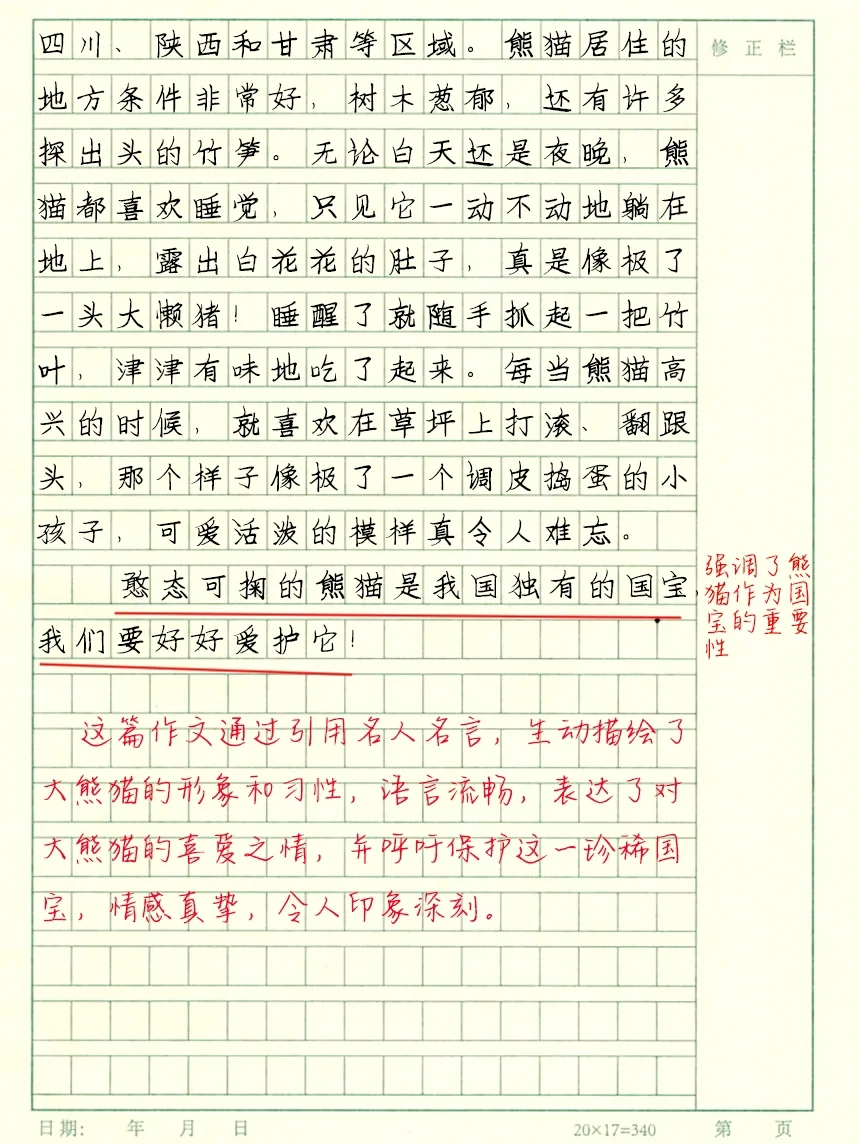 四川、陕西和甘肃等区域。熊猫居住的
修正栏
地方条件非常好，树木葱郁，还有许多
探出头的竹笋。无论白天还是夜晚，熊
猫都喜欢睡觉，只见它一动不动地躺在
地上，露出白花花的肚子，真是像极了
一头大懒猪！睡醒了就随手抓起一把竹
叶，津津有味地吃了起来。每当熊猫高
兴的时候，就喜欢在草坪上打滚、翻跟
头，那个样子像极了一个调皮捣蛋的小
孩子，可爱活泼的模样真令人难忘。
憨态可掬的熊猫是我国独有的国宝，
我们要好好爱护它！
强调了熊
猫作为国
宝的重要
性
这篇作文通过引用名人名言，生动描绘了
大熊猫的形象和习性，语言流畅，表达了对
大熊猫的喜爱之情，并呼吁保护这一珍稀国
宝，情感真挚，令人印象深刻。
日期： 年 月 日
20×17=340
第 页